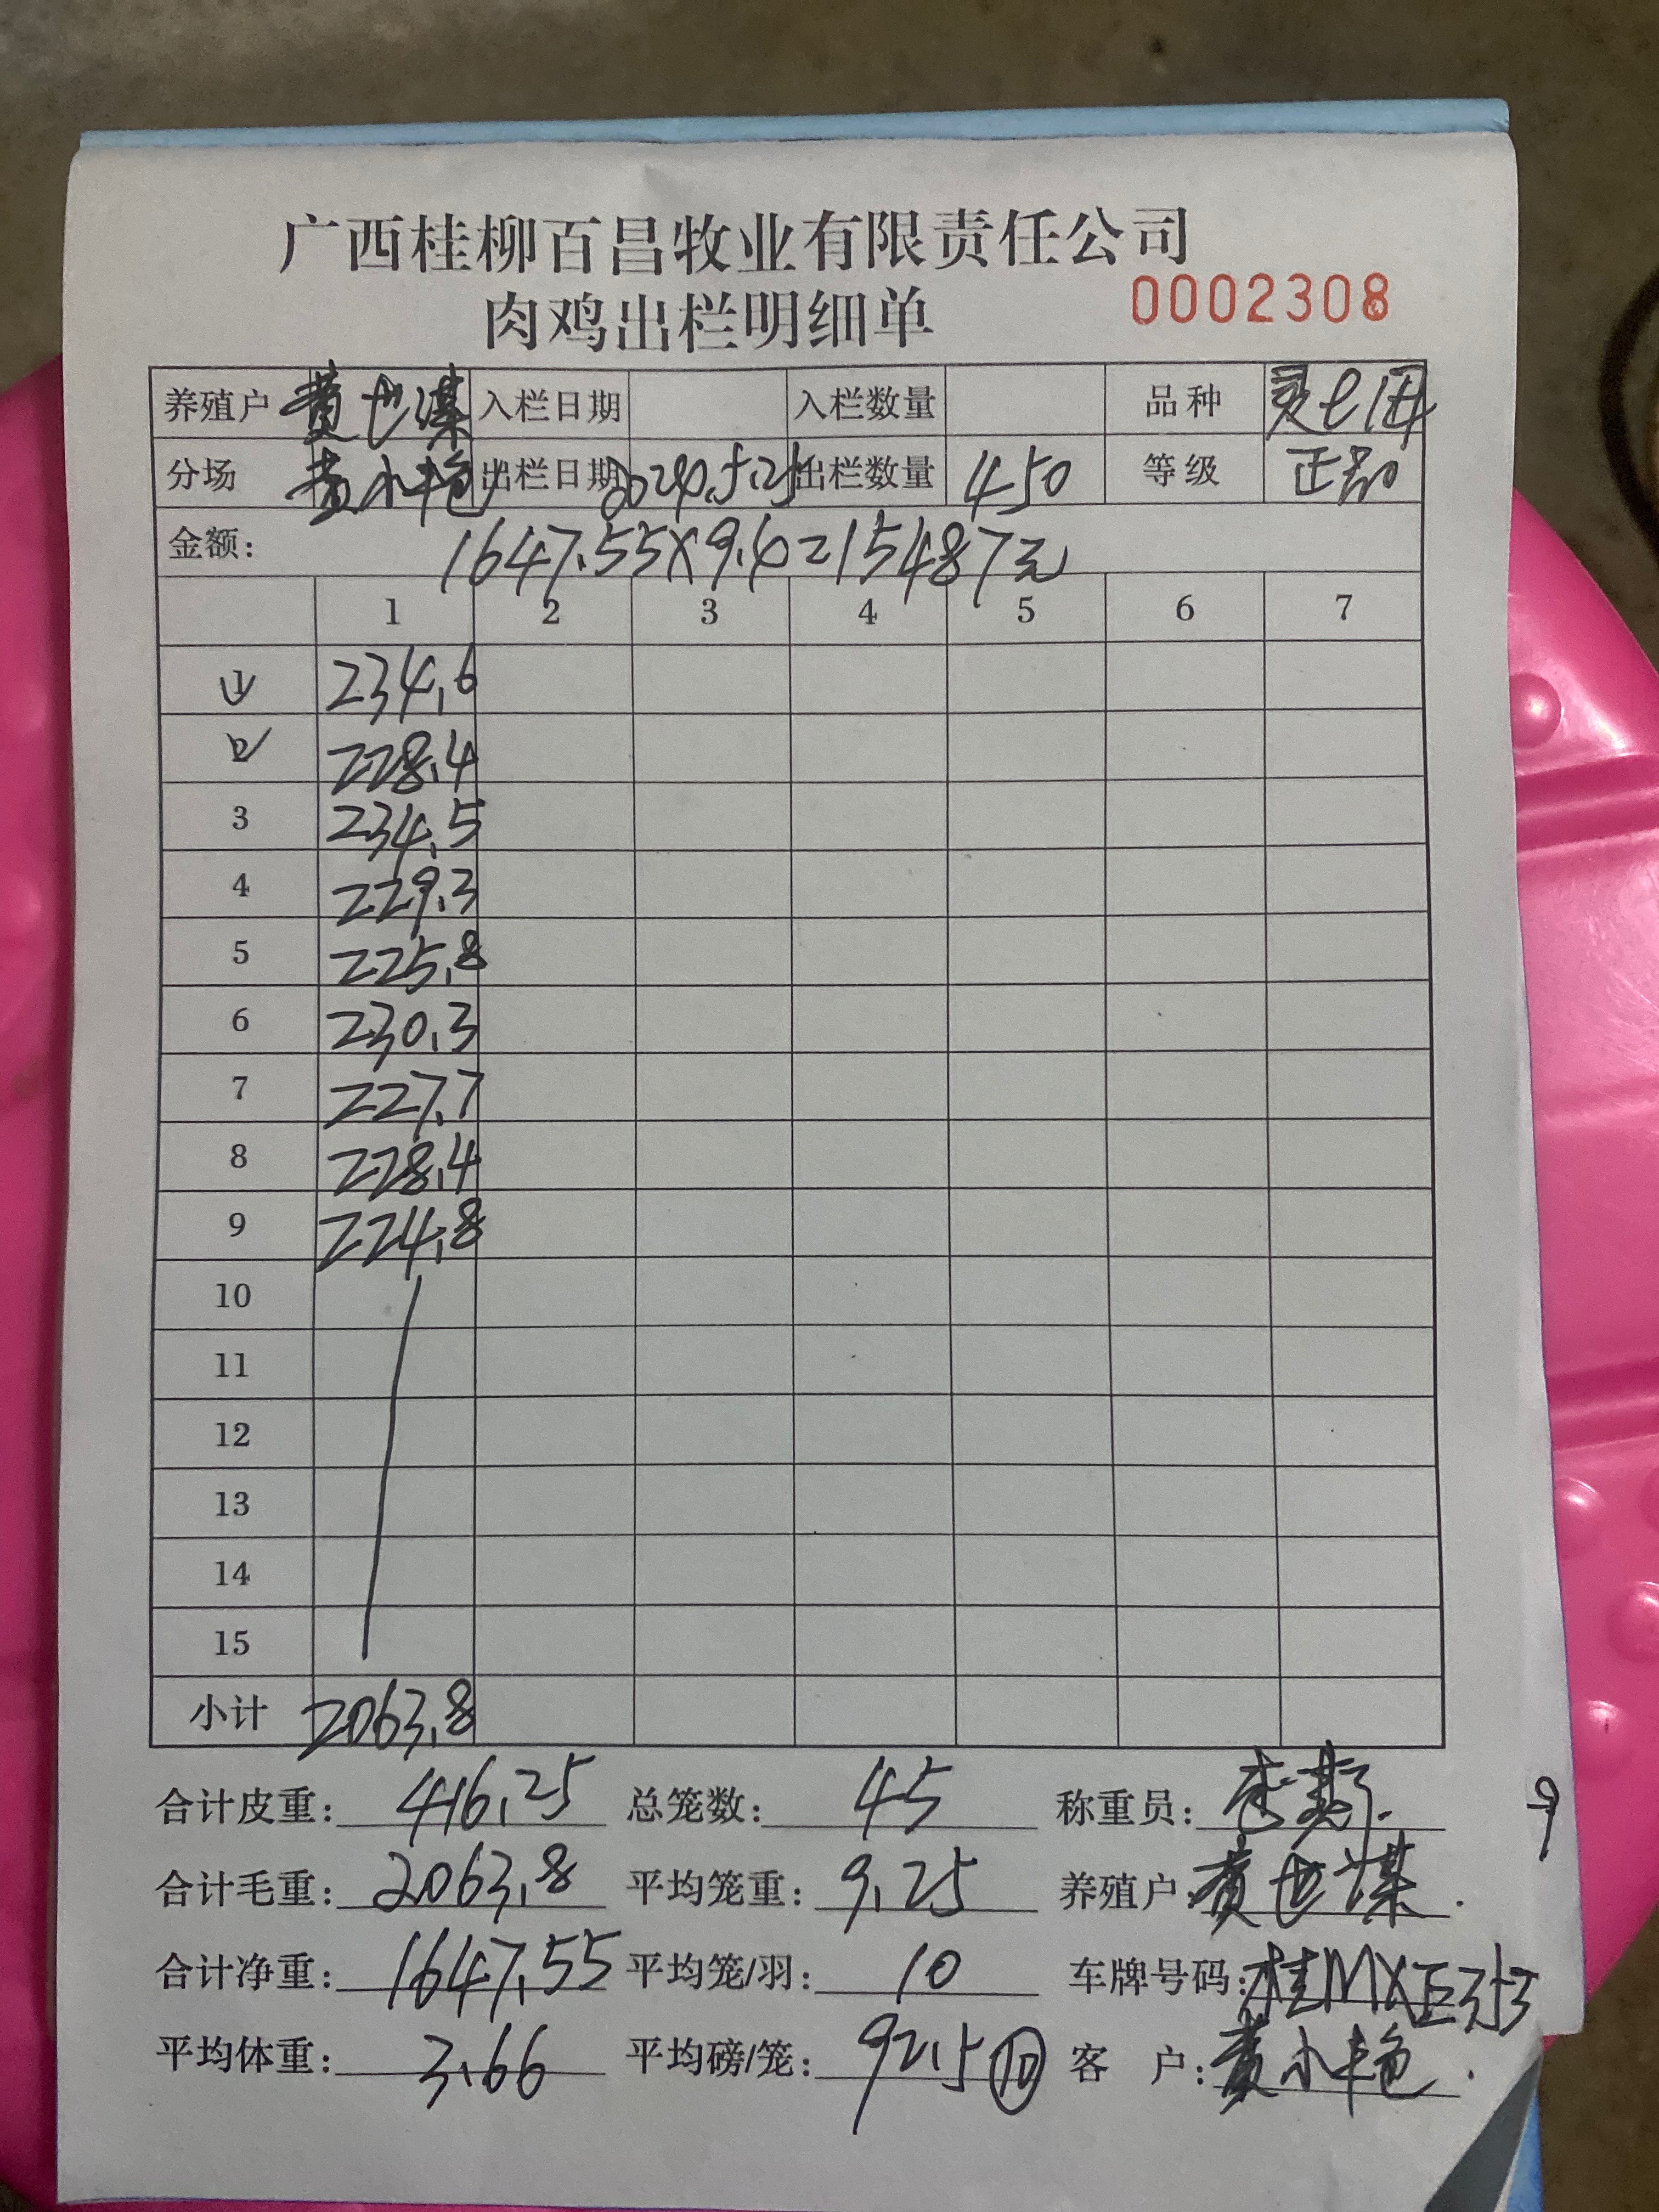 广西桂柳百昌牧业有限责任公司
肉鸡出栏明细单 0002308
养殖户 黄世谋 入栏日期 入栏数量 品种
分场 黄小艳 出栏日期 2024.5.25 出栏数量 450 等级 正品
金额: 1647.55×9.4=15487元
1 2 3 4 5 6 7
1 234.6
2 228.4
3 234.5
4 229.3
5 225.8
6 230.3
7 227.7
8 228.4
9 224.8
10
11
12
13
14
15
小计 2063.8
合计皮重: 416.25 总笼数: 45 称重员:
合计毛重: 2063.8 平均笼重: 9.25 养殖户: 黄世谋.
合计净重: 1647.55 平均笼/羽: 10 车牌号码:
平均体重: 3.66 平均磅/笼: 92.5⑩ 客 户: 黄小艳.